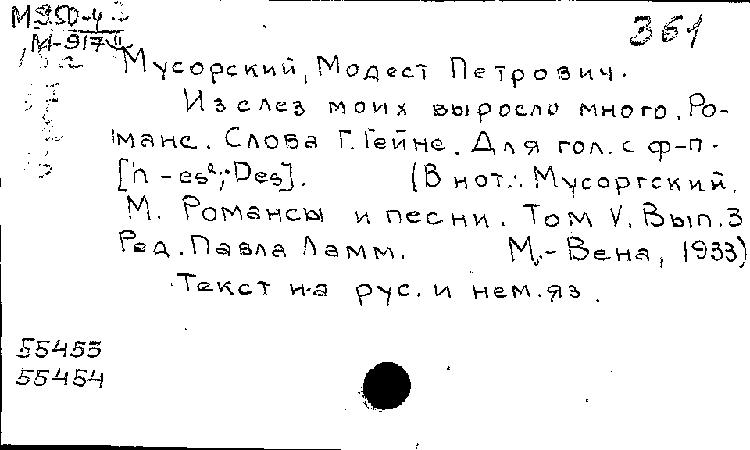 М950-4
М-917 II
361
Мусорский, Модест Петрович.
Из слез моих выросло много. Ро-
манс. Слова Г. Гейне. Для гол. с ф-п.
[h - es²; Des]. (В нот.: Мусоргский,
М. Романсы и песни. Том V. Вып. 3
Ред. Павла Ламм. М.-Вена, 1933)
Текст на рус. и нем. яз.
55453
55454